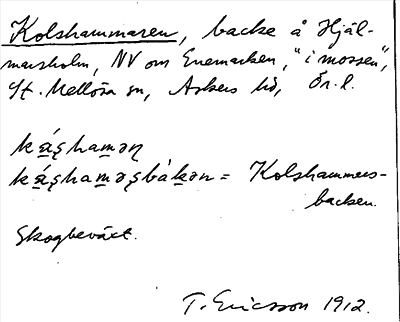 Kolshammaren, backe å Hjäl-
marsholm, NV om Enemarken, "i mossen",
St. Mellösa sn, Askers hd, Ör. l.
káʂhamən̥
káʂhaməʂbàkən = Kolshammars-
backen.
Skogbeväxt.
T. Ericsson 1912.